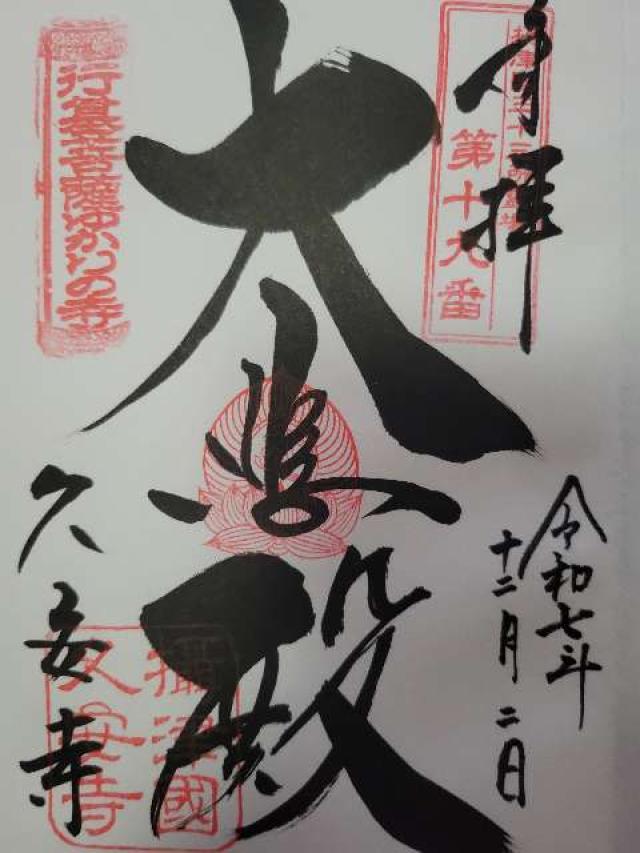 奉拝
摂津国三十三所霊場
第十九番
大悲殿
行基菩薩ゆかりの寺
令和七年
十二月二日
久安寺
攝津國
久安寺